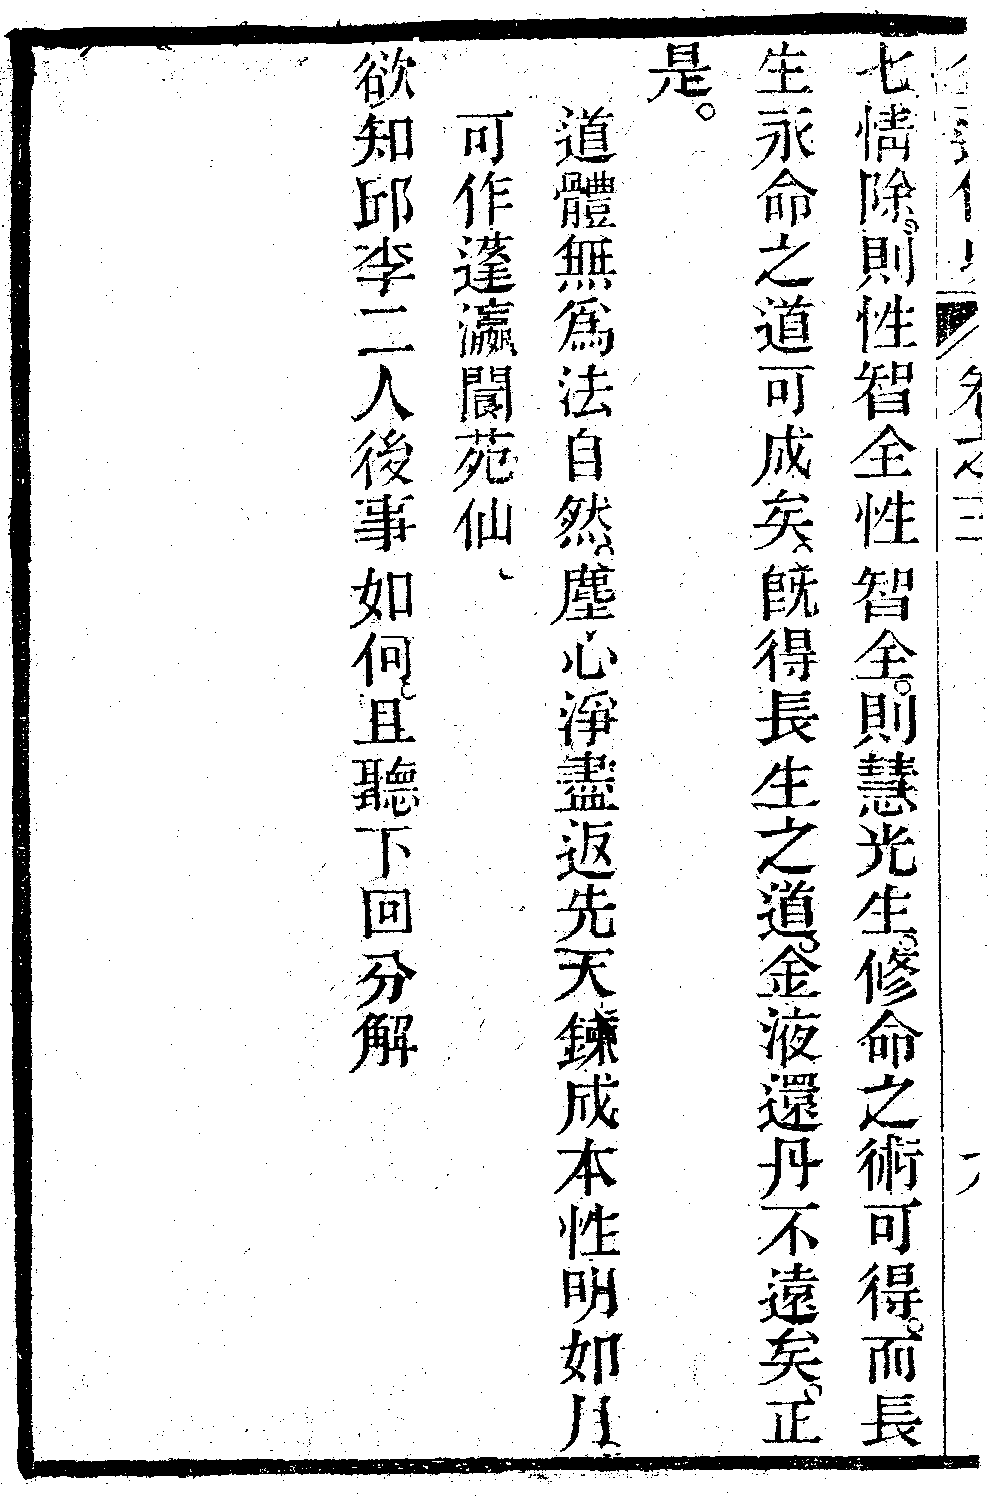 七情除。則性智全性智全。則慧光生。修命之術可得。而長
生永命之道可成矣。既得長生之道。金液還丹不遠矣。正
是。
道體無爲法自然。塵心淨盡返先天鍊成本性明如月
可作蓬瀛閬苑仙、
欲知邱李二人後事如何。且聽下回分解